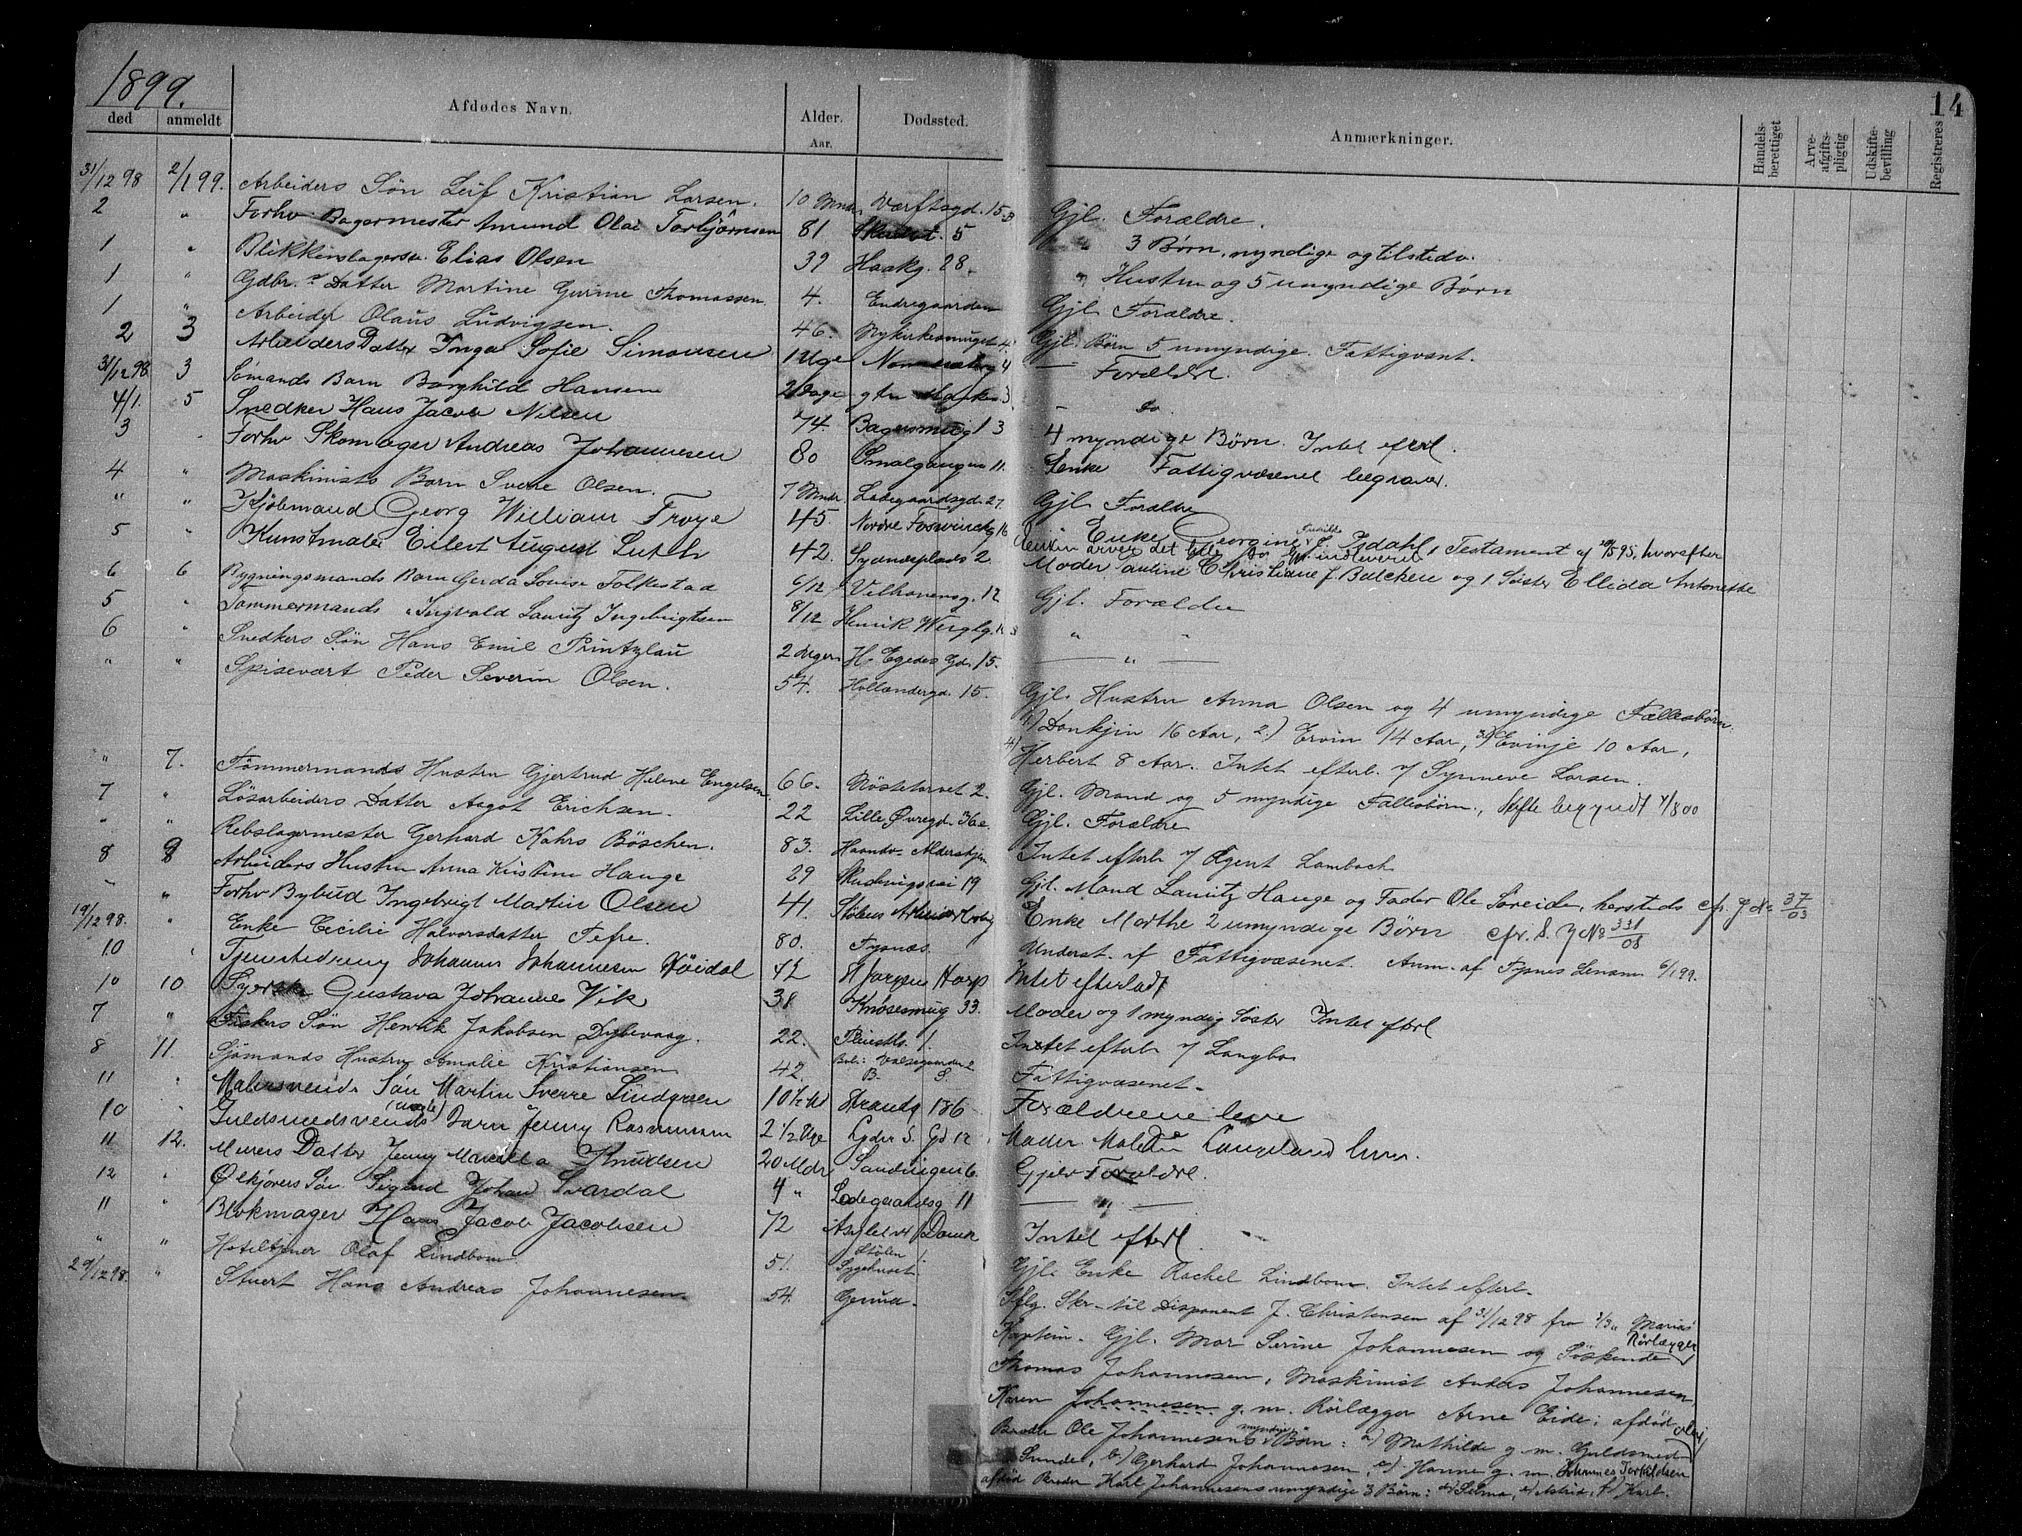 1899.
14
død anmeldt Afdødes Navn. Alder. Aar. Dødssted. Anmærkninger. Handelsberettiget Arveafgiftspligtig Udskiftebevilling Registreres
31/12 98 2/1 99. Arbeiders Søn Leif Kristian Larsen. 10 Mndr. Værftsgd. 15 Gjl. Forældre.
2 " Forhv. Bagermester Amund Olai Torbjørnsen 81 5 3 Børn, myndige og tilstede.
1 " Blikkenslagersv. Elias Olsen 39 Haakg. 28. " Hustru og 5 umyndige Børn
1 " Gdbr. Datter Martine Gurine Thomassen. 4. Endregaarden Gjl. Forældre.
1 " Arbeider Olaus Ludvigsen. 46. Nykirkesmuget 4 Gjl. Børn 5 umyndige. Fattigvæst.
2 3 Arbeiders Datter Inga Sofie Simonsen 1 Uge 4 — Forældre.
31/12 98 3 Sømands Barn Borghild Hansen 2 Dage 3 — do
4/1. 5 Snedker Hans Jacob Nilsen 74. Bagersmug 3 4 myndige Børn. Intet efterl.
3 Forhv Skomager Andreas Johannesen 80 Smalgangen 11. Enke Fattigvæsenet begraver.
4 " Maskinists Barn Sverre Olsen. 7 Mndr. Ladegaardsgd. 27. Gjl. Forældre
" " Kjøbmand Georg William Troye 45. Nordre Fosswinckg 16 Enke Georgine f. Isdahl, Testament af 20/5 95, hvorefter
Enken arver det hele
5 " Kunstmaler Eilert August Lütch 42. Sydnæsplads 2. Moder Pauline Christiane f. Balchen og 1 Søster Ellida Antonette
6 6 Bygningsmands Barn Gerda Lovise Folkestad 6/12 Vilhonensg. 12 Gjl. Forældre
5 " Tømmermands " Ingvald Lauritz Ingebrigtsen 8/12 Henrik Wergl.g. " "
6 " Snedkers Søn Hans Emil Printzlau 2 Uger H. Egedes Gd. 15. — " —
" " Spisevært Peder Severin Olsen. 54. Hollændergd. 15. Gjl. Hustru Anna Olsen og 4 umyndige Fællesbørn:
1) 16 Aar, 2.) Ervin 14 Aar, 3) Evinje 10 Aar,
4) Herbert 8 Aar. Intet efterl. / Synneve Larsen.
" 7. Tømmermands Hustru Gjertrud Helene Engelsen 66. Nøstetorvet 2. Gjl. Mand og 5 myndige Fællesbørn., Skifte begyndt
7 " Løsarbeiders Datter Aagot Erichsen. 22 Lille Øvregd. 36 c. Gjl. Forældre
" " Rebslagermester Gerhard Kahrs Böschen. 83. Haandv. Aldershjem Intet efterl. / Agent Lambach
8 8 Arbeiders Hustru Anna Kristine Hauge 29 Skudevigsvei 19 Gjl. Mand Lauritz Hauge og Fader Ole Søreide, hersteds cfr. J No 37/03
" " Forhv Bybud Ingebrigt Martin Olsen 41. Enke Marthe 2 umyndige Børn cfr. S. J No 331/08
19/12 98. " Enke Cecilie Halvorsdatter Tefre. 80. Tysnæs. Underst. af Fattigvæsenet. Anm. af Tysnes Lensm. 6/1 99.
10 " Tjenestedreng Johannes Johannesen Höidal 42 St Jørgen Hosp Intet efterladt
10 10 Syerske Gustava Johanne Vik 38 Knøsesmug 33. Moder og 1 myndig Søster Intet efterl
7 " Fiskers Søn Henrik Jakobsen Dybevaag. 22. Pleiestk. 1. Intet efterl. / Langbo
8 11. Sjømands Hustru Amalie Kristiansen 42. Fattigvæsenet.
11 " Malersvends Søn Martin Sverre Lindgreen 10 1/2 M Strandg 186 Forældrene leve
10 " Guldsmedsvends (uægte) Barn Jenny Rasmussen 2 1/2 Uge Lyder S. Gd 12 Moder Malene Langeland lever.
11 12. Murers Datter Jenny Knudsen 20 Mdr Sandvigen 6. Gjelv Forældre.
12 " Ølkjørers Søn Sigurd Johan Svardal 4 " Ladegaardsg 11 — " —
11 " Blokmager Hans Jacob Jacobsen 72 Intet efterl.
" " Hoteltjener Olaf Lindbom 51. Stølen Sygehuset Gjl. Enke Rachel Lindbom. Intet efterl.
29/12 98. " Stuert Hans Andreas Johannesen 54. Iflg. Skr. til Disponent J. Christensen af 31/12 98 fra Marias
Kaptein. Gjl. Mor Serine Johannesen og Søskende Rørlægger
Thomas Johannesen, Maskinist Anders Johannesen
Karen Johannesen g. m. Rørlægger Arne Eide; afdød
Broder Ole Johannesens myndige Børn: a) Mathilde g. m. Guldsmed
Sunde, b) Gerhard Johannesen, c) Hanne g. m. Johannes Torkildsen
afdød Broder Karl Johannesens umyndige 3 Børn: d) Selma, e) Astrid, f) Karl.